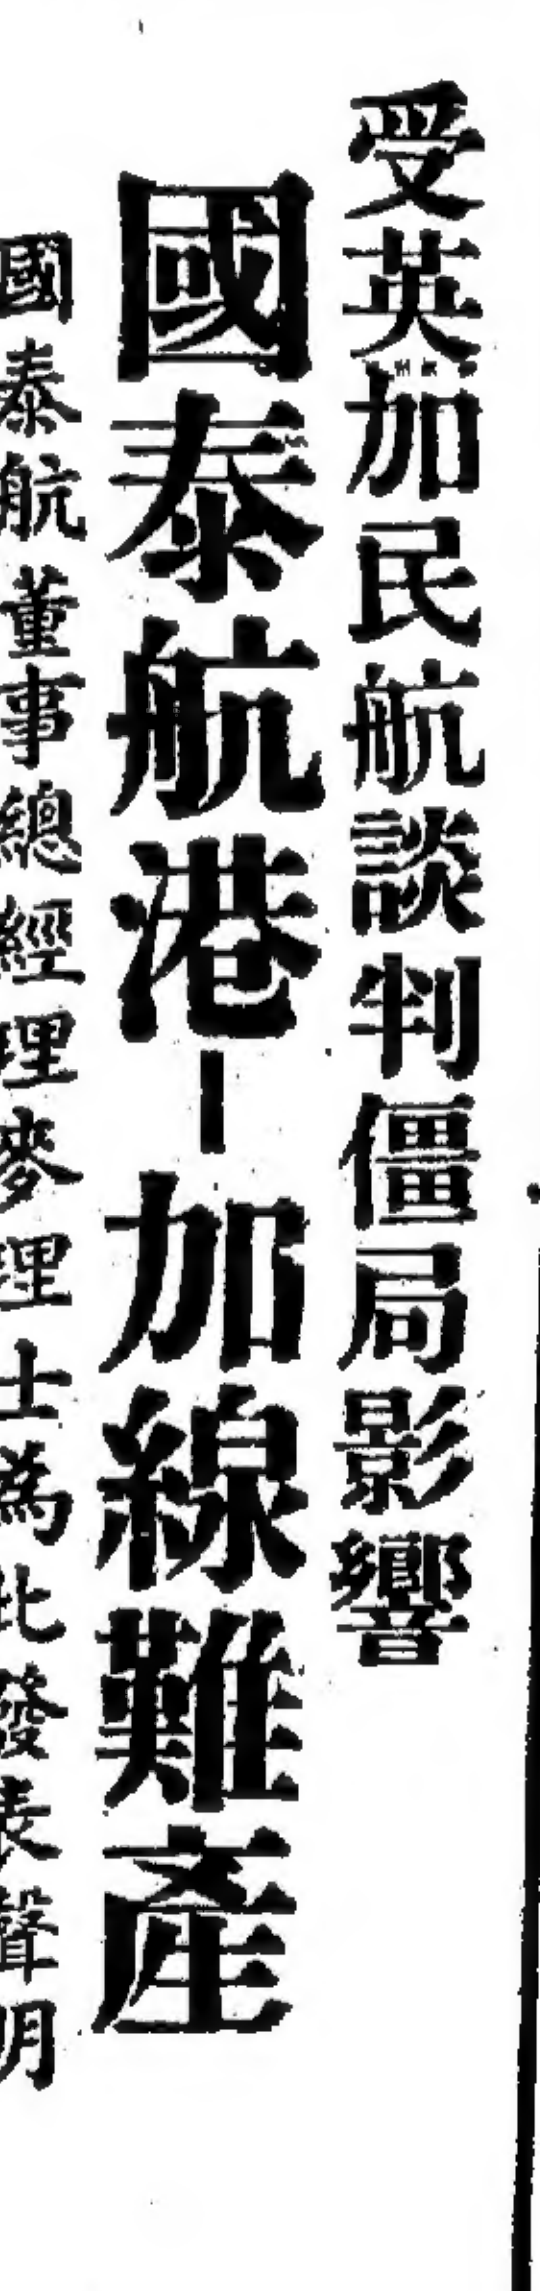 受英加民航談判僵局影響
國泰航港-加線難產
國泰航董事總經理麥理士為此發表聲明